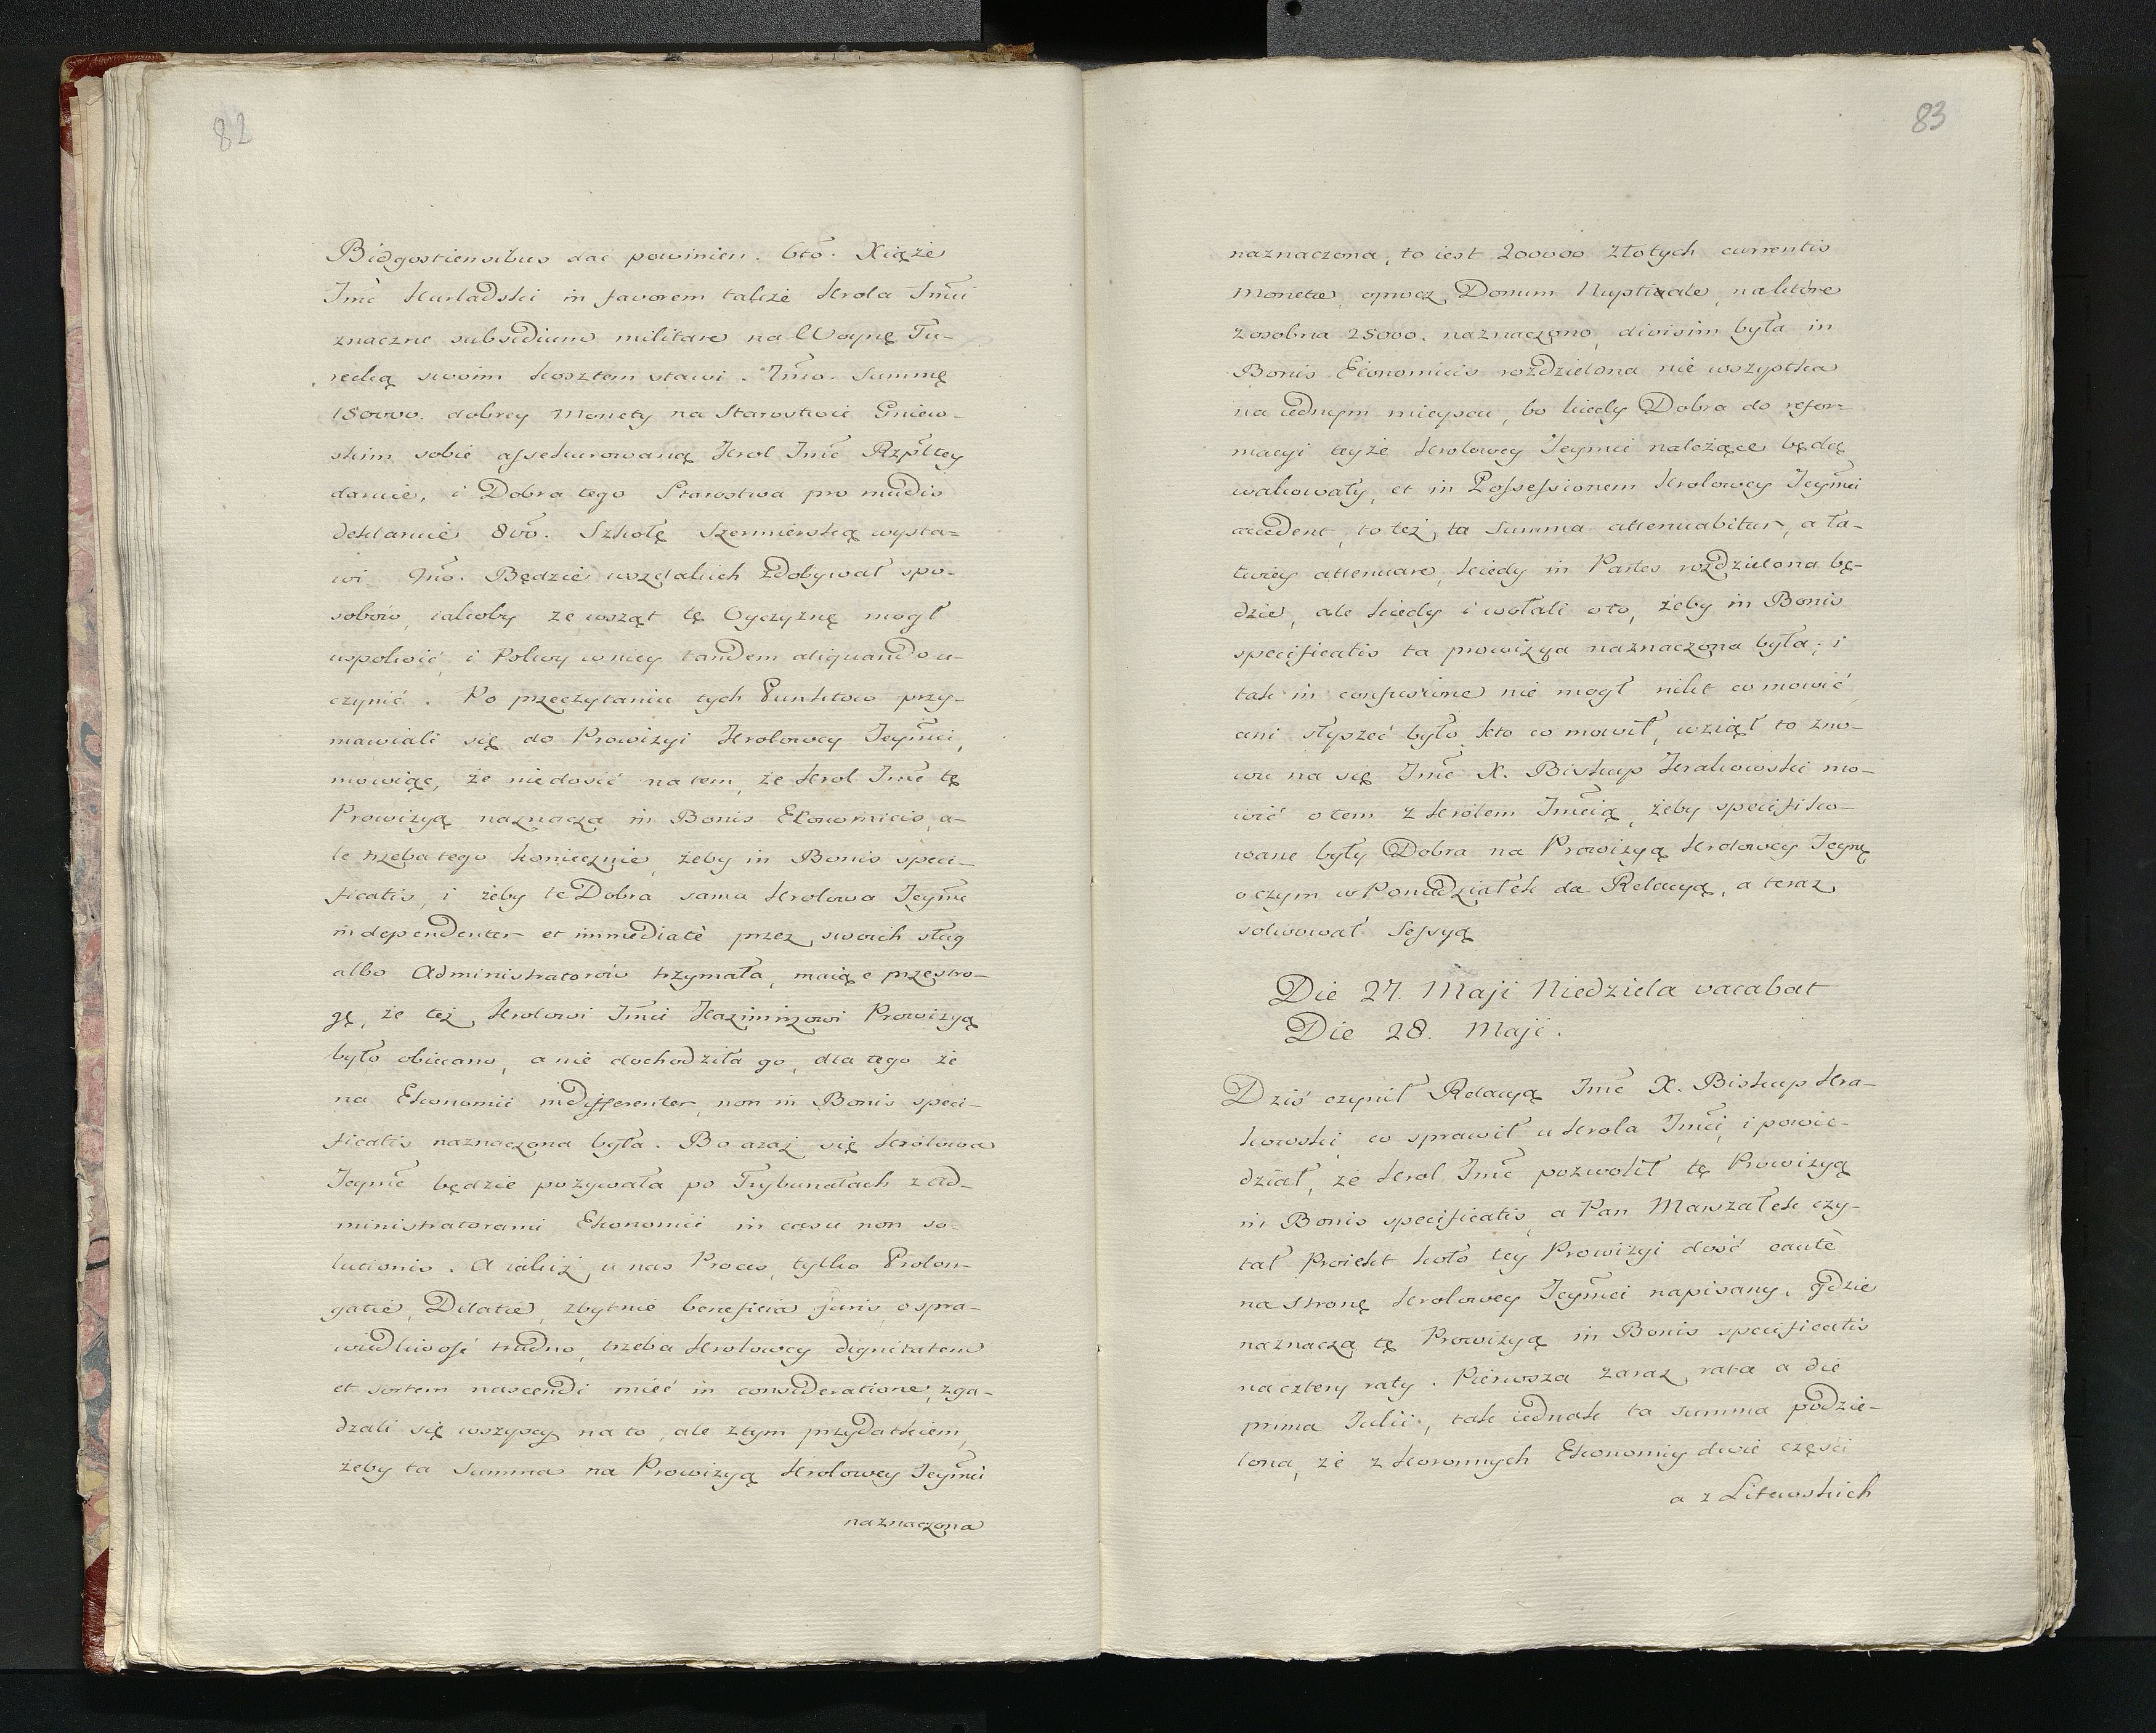 82
Bidgostiensibus dać powinien. 6to. Xiąże
Jmć Kurladski in favorem także Krola Jmci
znaczne subsidium militare na Woynę Tu-
recką swoim kosztem stawi. 7mo. Summę
18000. dobrey Monety na Starostwie Gniew-
skim sobie assekurowaną Krol Jmć Rzpltey
daruie, i Dobra tego Starostwa pro nudis
deklaruie 8vo. Szkołę Szermierską wysta-
wi. 9no. Będzie wszelakich zdobywał spo-
sobow, iakoby ze wsząt tę Oyczyznę mogł
uspokoić, i Pokoy w niey tandem aliquando u-
czynić. Po przeczytaniu tych Punktow przy-
mawiali się do Prowizyi Krolowey Jeymci,
mowiąc, że niedosić na tem, że Krol Jmć tę
Prowizyą naznacza in Bonis Ekonomicis, a-
le trzeba tego koniecznie, żeby in Bonis speci-
ficatis, i żeby te Dobra sama Krolowa Jeymć
independenter et immediatè przez swoich sług
albo Administratorow trzymała, maiąc przestro-
gę, że też Krolowi Jmci Kazimirzowi Prowizyą
było obiecano, a nie dochodziła go, dla tego że
na Ekonomii indifferenter, non in Bonis speci-
ficatis naznaczona była. Bo azaż się Krolowa
Jeymć będzie pozywała po Trybunałach z Ad-
ministratorami Ekonomii in casu non so-
lutionis. A iakiż u nas Proces, tylko Prolon-
gatie, Dilatie, zbytnie beneficia juris, o spra-
wiedliwość trudno, trzeba Krolowey dignitatem
et sortem nascendi mieć in consideratione, zga-
dzali się wszyscy na to, ale z tym przydatkiem,
żeby ta Summa na Prowizyą Krolowey Jeymci
naznaczona
83
naznaczona, to iest 200000 złotych currentis
Monetæ, oprocz Donum Nuptiale, na które
zosobna 25000. naznaczono, divisim była in
Bonis Economicis rozdzielona nie wszystka
na iednym mieyscu, bo kiedy Dobra do refor-
macyi teyże Krolowey Jeymci należące będą
wakowały, et in Possessionem Krolowey Jeymci
accedent, to też ta Summa attenuabitur, a ła-
twiey attenuare, kiedy in Partes rozdzielona bę-
dzie, ale kiedy i wołali o to, żeby in Bonis
specificatis ta prowizya naznaczona była; i
tak in confusione nie mogł nikt co mowić,
ani słyszeć było kto co mowił, wziął to zno-
wu na się Jmć X. Biskup Krakowski mo-
wić o tem z Krolem Jmcią, żeby specifiko-
wane były Dobra na Prowizyą Krolowey Jeymć
o czym w Poniedziałek da Relacyą, a teraz
solwował Sessyą
Die 27. Maji Niedziela vacabat
Die 28. Maji.
Dziś czynił Relacyą Jmć X. Biskup Kra-
kowski, co sprawił u Krola Jmci, i powie-
dział, że Krol Jmć pozwolił tę Prowizyą
in Bonis specificatis, a Pan Marszałek czy-
tał Proiekt koło tey Prowizyi dość cautè
na stronę Krolowey Jeymci napisany, gdzie
naznacza tę Prowizyą in Bonis specificatis
na cztery raty. Pierwsza zaraz rata a die
prima Julii, tak iednak ta summa podzie-
lona, że z Koronnych Ekonomiy dwie części
a z Litewskich